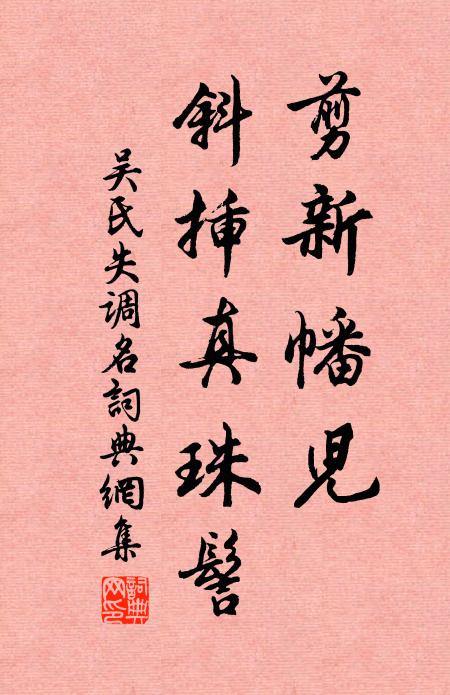 剪新幡児
斜挿真珠髻
吴氏失调名詞典網集
詞典网印